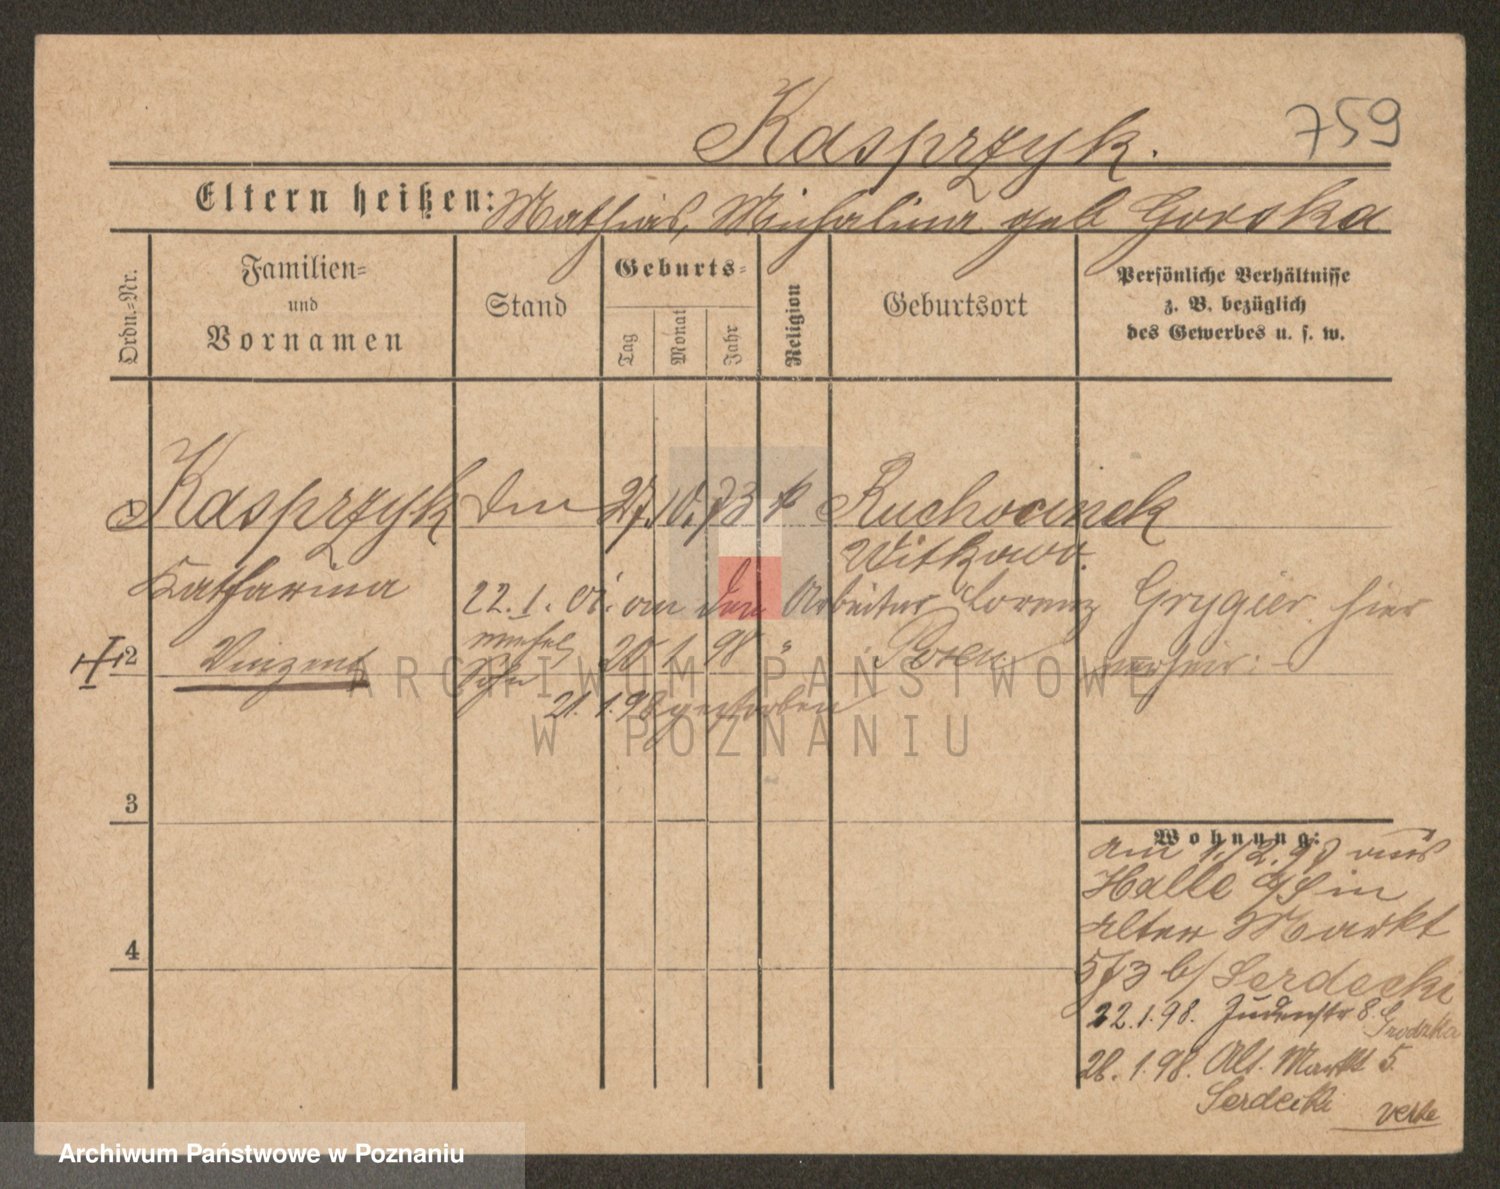 Kasprzyk.
759
Eltern heißen: Mathias, Michalina geb Gorska
Ordn.-Nr.
Familien- und Vornamen
Stand
Geburts-
Tag
Monat
Jahr
Religion
Geburtsort
Persönliche Verhältnisse
z. B. bezüglich
des Gewerbes u. s. w.
1 Kasprzyk 27. 10. 73 k Ruchocinek
Witkowo.
Katharina
22. 1. 01. om den Arbeiter Lorenz Grygier hier
2 Vinzent Sohn 20 1 98 " Posen verheir:
21. 1. 98 gestorben
3
4
Wohnung:
am 1./2. 97 aus
Halle a/S in
Alter Markt
5/3 b/ Serdecki
22.1.98. Judenstr 8. Grodzka
28.1.98. Alt. Markt 5.
Serdecki
ARCHIWUM PAŃSTWOWE
W POZNANIU
Archiwum Państwowe w Poznaniu